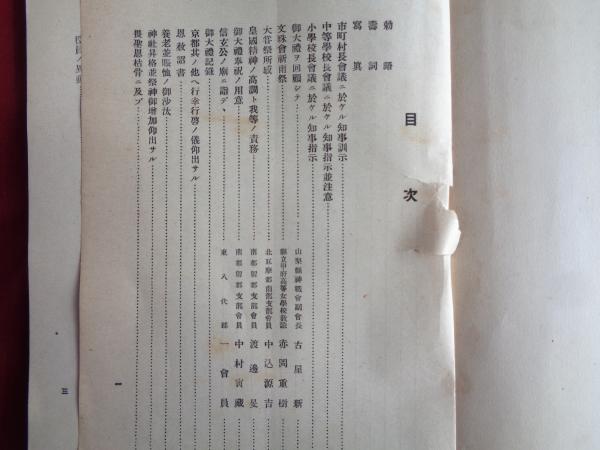 目次
勅語
壽詞
寫眞
市町村長會議ニ於ケル知事訓示
中等學校長會議ニ於ケル知事指示並注意
小學校長會議ニ於ケル知事指示
御大禮ヲ回顧シテ 山梨縣神職會副會長 古屋新
文珠會祈雨祭 縣立甲府高等女學校敎諭 赤岡重樹
大甞祭所感 北巨摩郡南部支部會員 中込源吉
皇國精神ノ高調ト我等ノ責務 南都留郡支部會員 渡邊晃
御大禮奉祝ノ用意 南都留郡支部會員 中村寅藏
信玄公ノ廟ニ詣デヽ 東八代郡 一會員
御大禮記錄
京都其ノ他ヘ行幸行啓ノ儀仰出サル
恩赦詔書
養老並賑恤ノ御沙汰
神社昇格並祭神御增加仰出サル
畏聖恩枯骨ニ及ブ
一
三